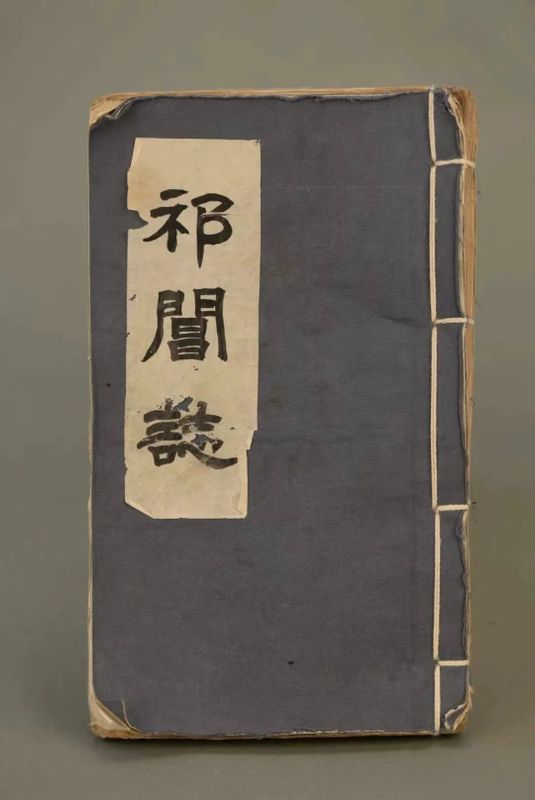 祁
閶
誌